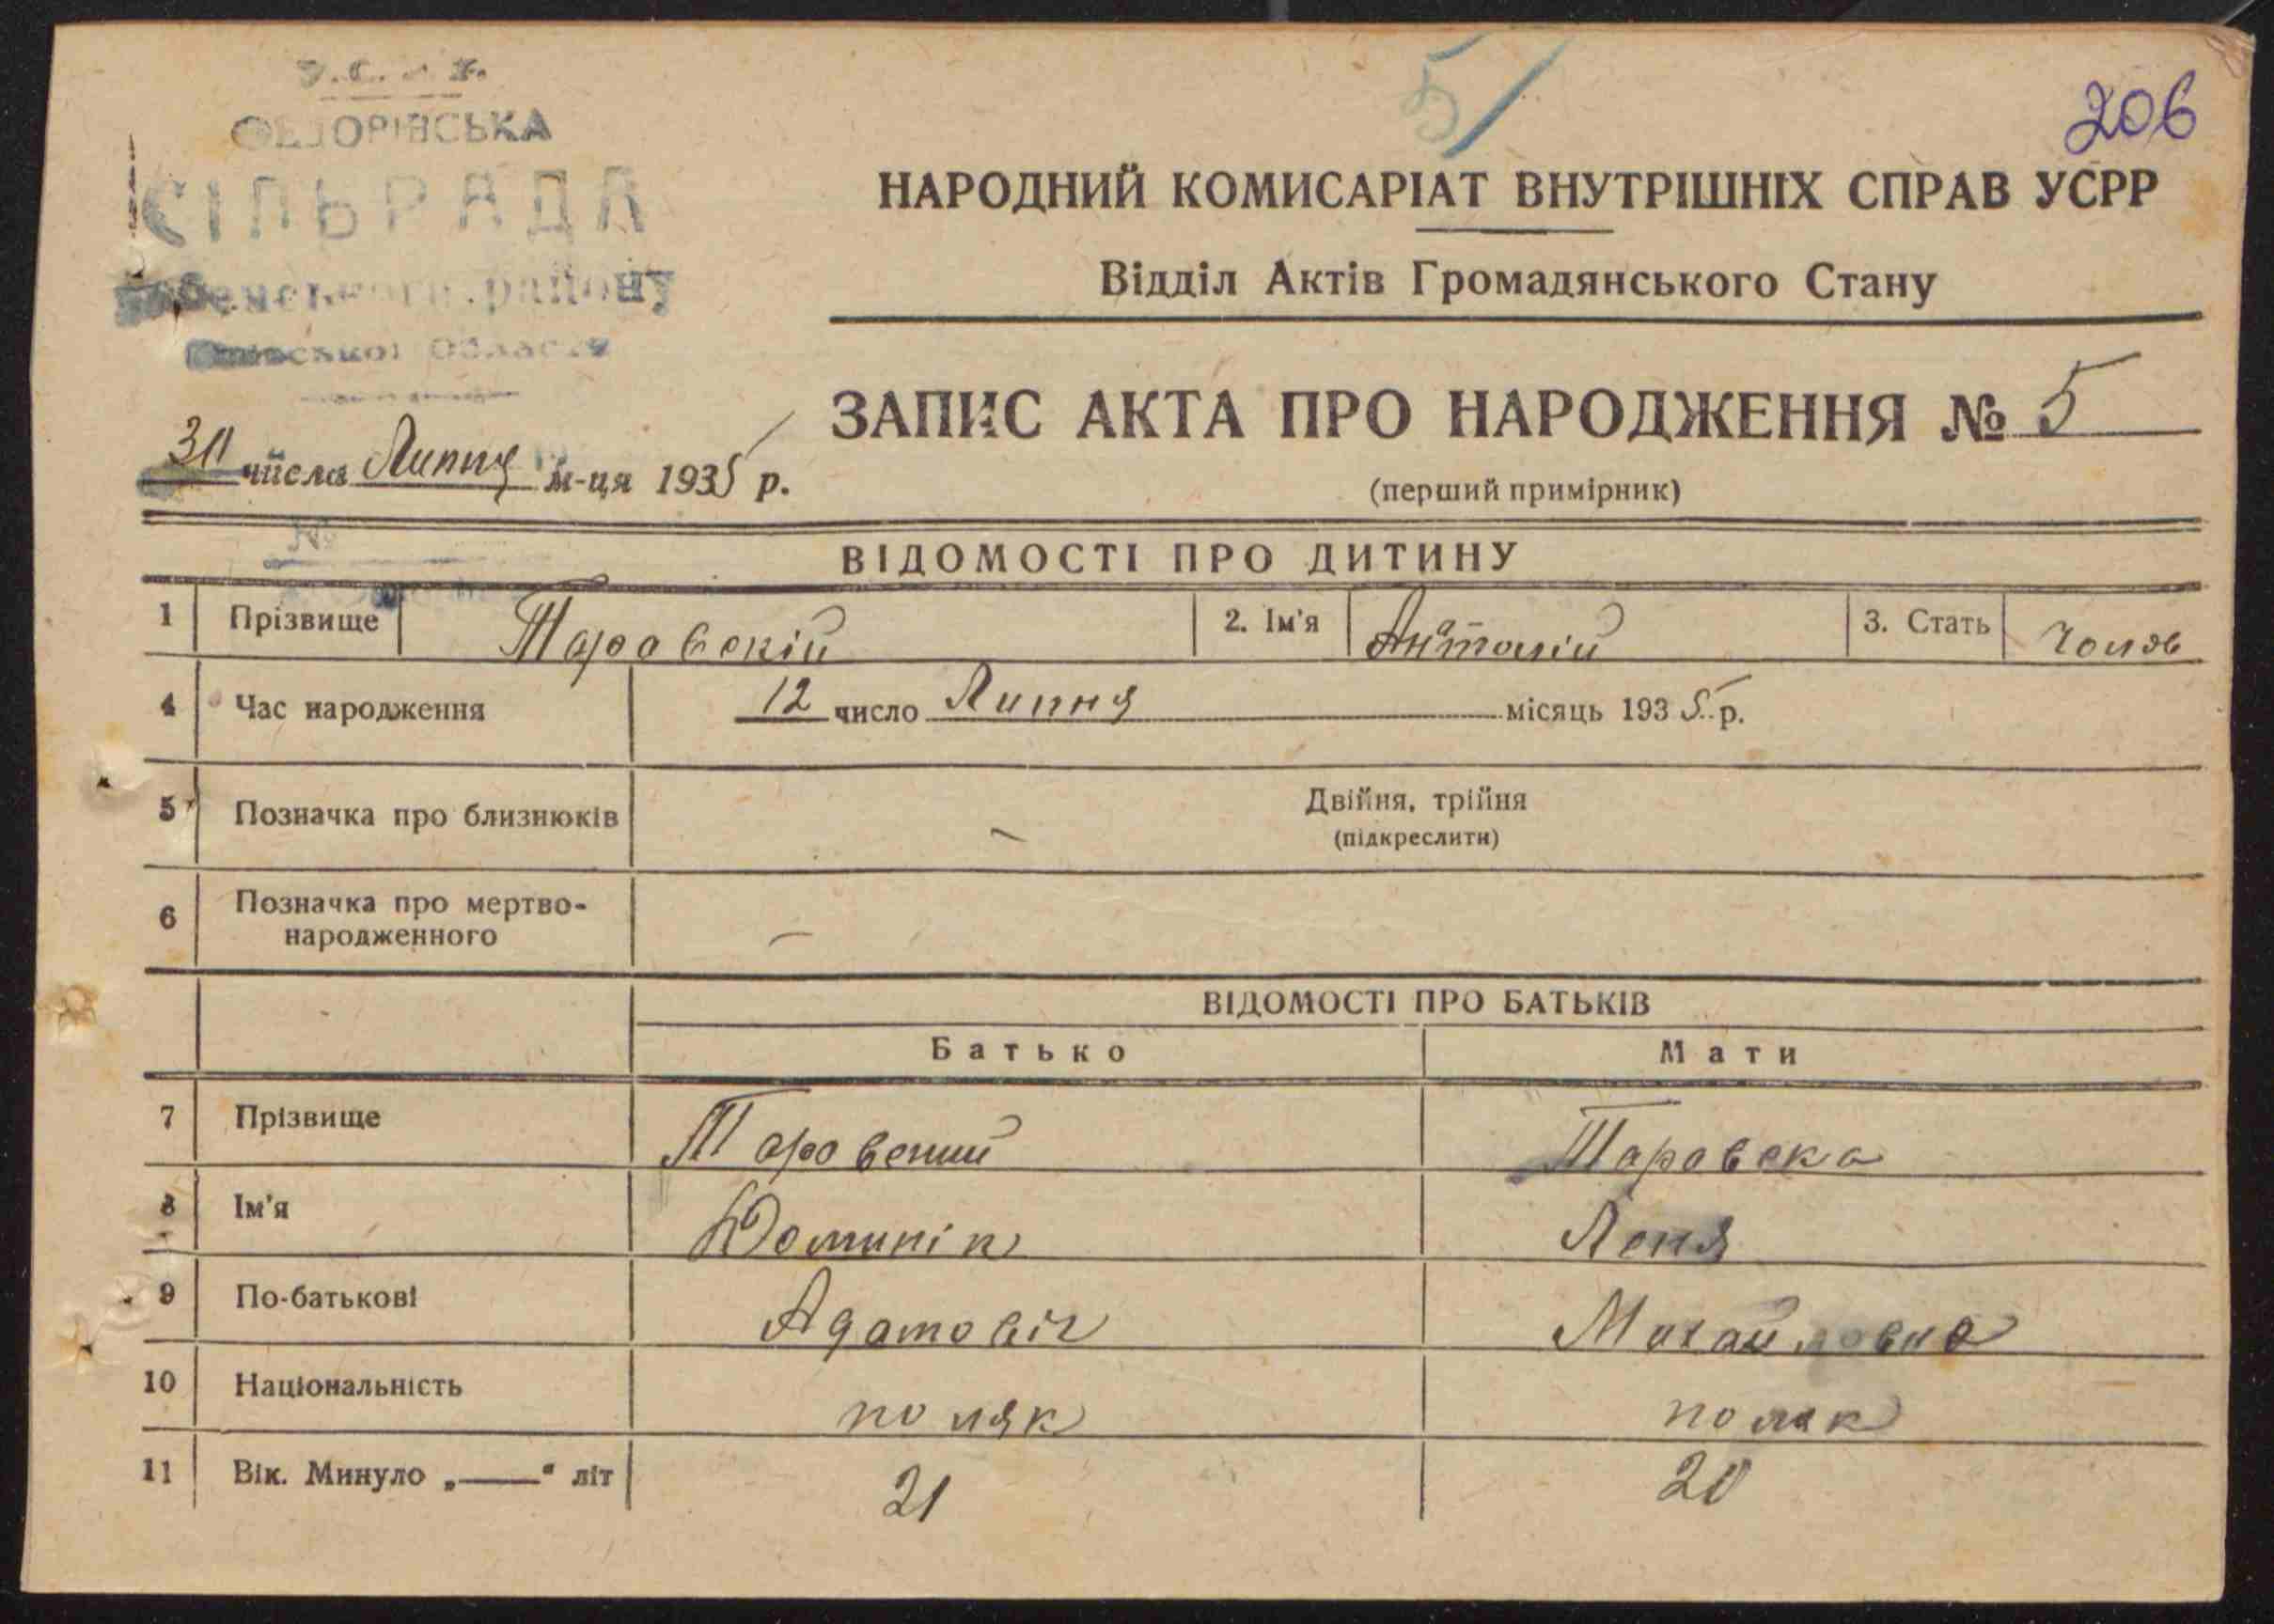 5/
206
ФЕДОРІВСЬКА
СІЛЬРАДА
району
Області
НАРОДНИЙ КОМИСАРІАТ ВНУТРІШНІХ СПРАВ УСРР
Відділ Актів Громадянського Стану
ЗАПИС АКТА ПРО НАРОДЖЕННЯ № 5
числа Липня м-ця 1935 р.
(перший примірник)
№
ВІДОМОСТІ ПРО ДИТИНУ
1 Прізвище Таровскій 2. Ім'я 3. Стать Чолов
4 Час народження 12 число Липня місяць 1935 р.
5 Позначка про близнюків – Двійня, трійня
(підкреслити)
6 Позначка про мертво-
народженного –
ВІДОМОСТІ ПРО БАТЬКІВ
Батько Мати
7 Прізвище Таровский Таровска
8 Ім'я Домінік Леня
9 По-батькові Адамовіч Михайловна
10 Національність поляк поляк
11 Вік. Минуло „——“ літ 21 20